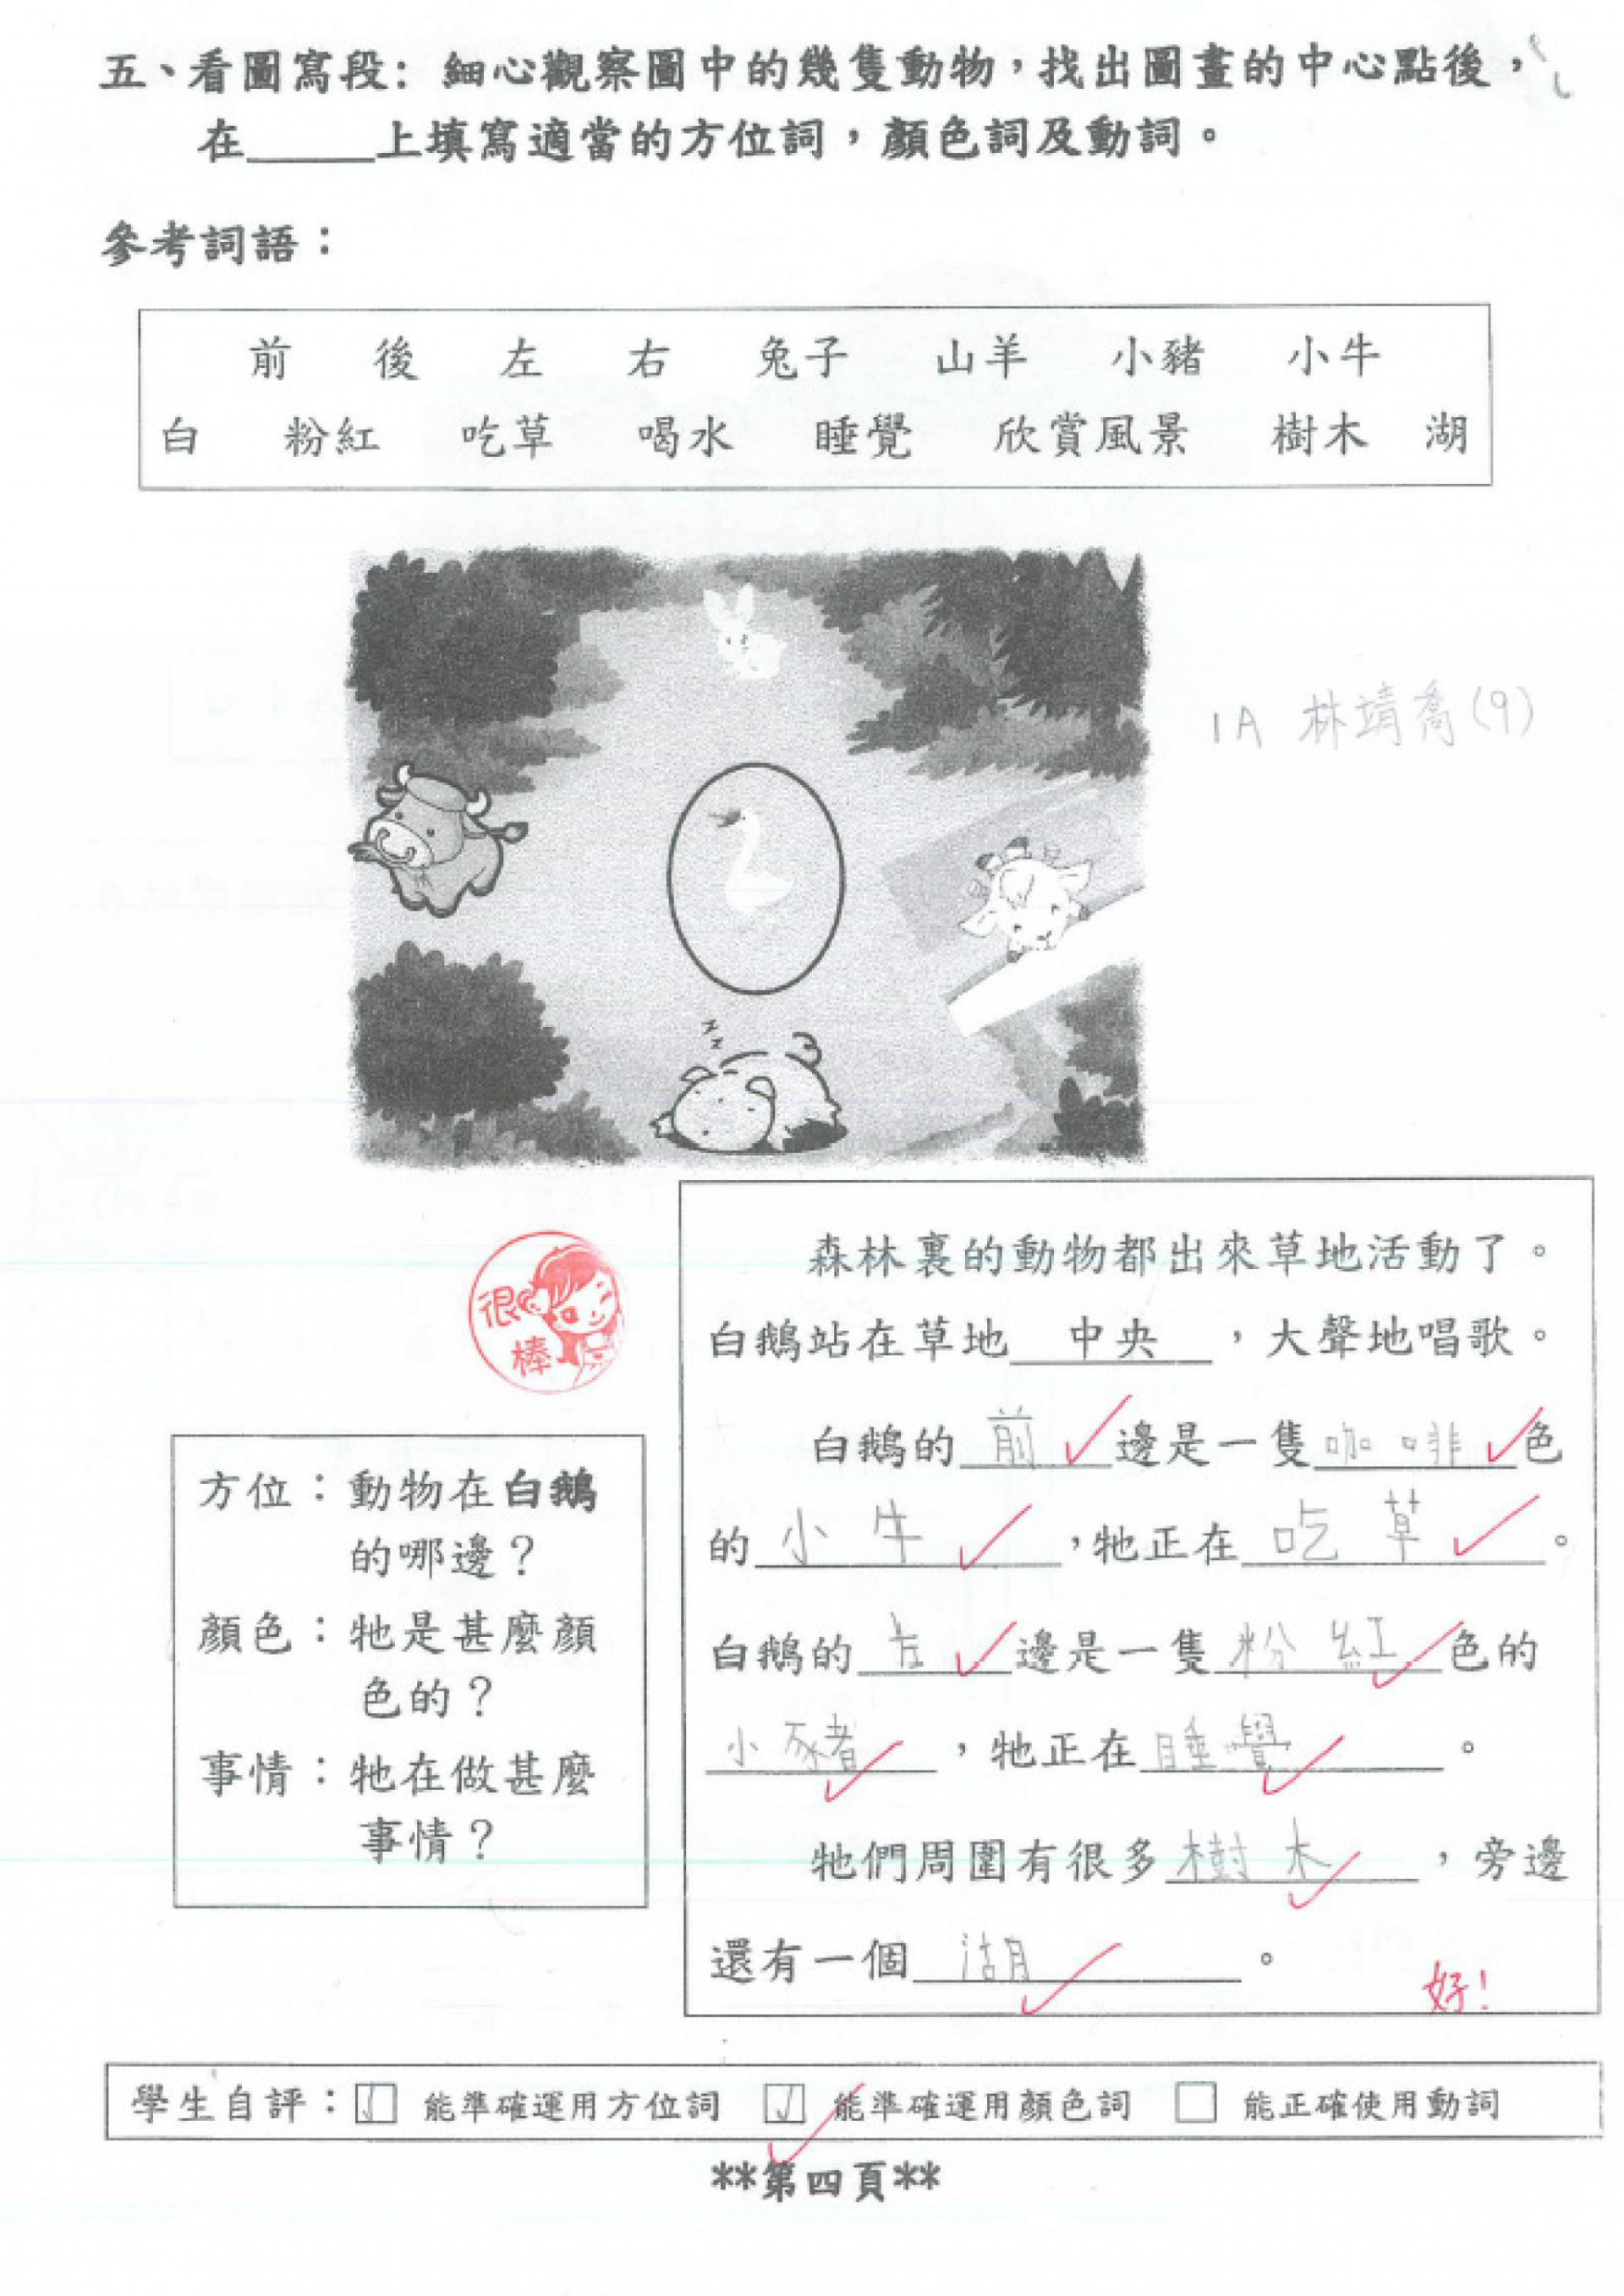 五、看圖寫段：細心觀察圖中的幾隻動物，找出圖畫的中心點後，
在_____上填寫適當的方位詞，顏色詞及動詞。
參考詞語：
前 後 左 右 兔子 山羊 小豬 小牛
白 粉紅 吃草 喝水 睡覺 欣賞風景 樹木 湖
1A 林靖喬(9)
很棒
森林裏的動物都出來草地活動了。
白鵝站在草地 中央 ，大聲地唱歌。
白鵝的 前 邊是一隻 咖啡 色
的 小牛 ，牠正在 吃草 。
白鵝的 左 邊是一隻 粉紅 色的
小豬 ，牠正在 睡覺 。
牠們周圍有很多 樹木 ，旁邊
還有一個 湖 。
好！
方位：動物在白鵝
的哪邊？
顏色：牠是甚麼顏
色的？
事情：牠在做甚麼
事情？
學生自評：☑ 能準確運用方位詞 ☑ 能準確運用顏色詞 □ 能正確使用動詞
**第四頁**